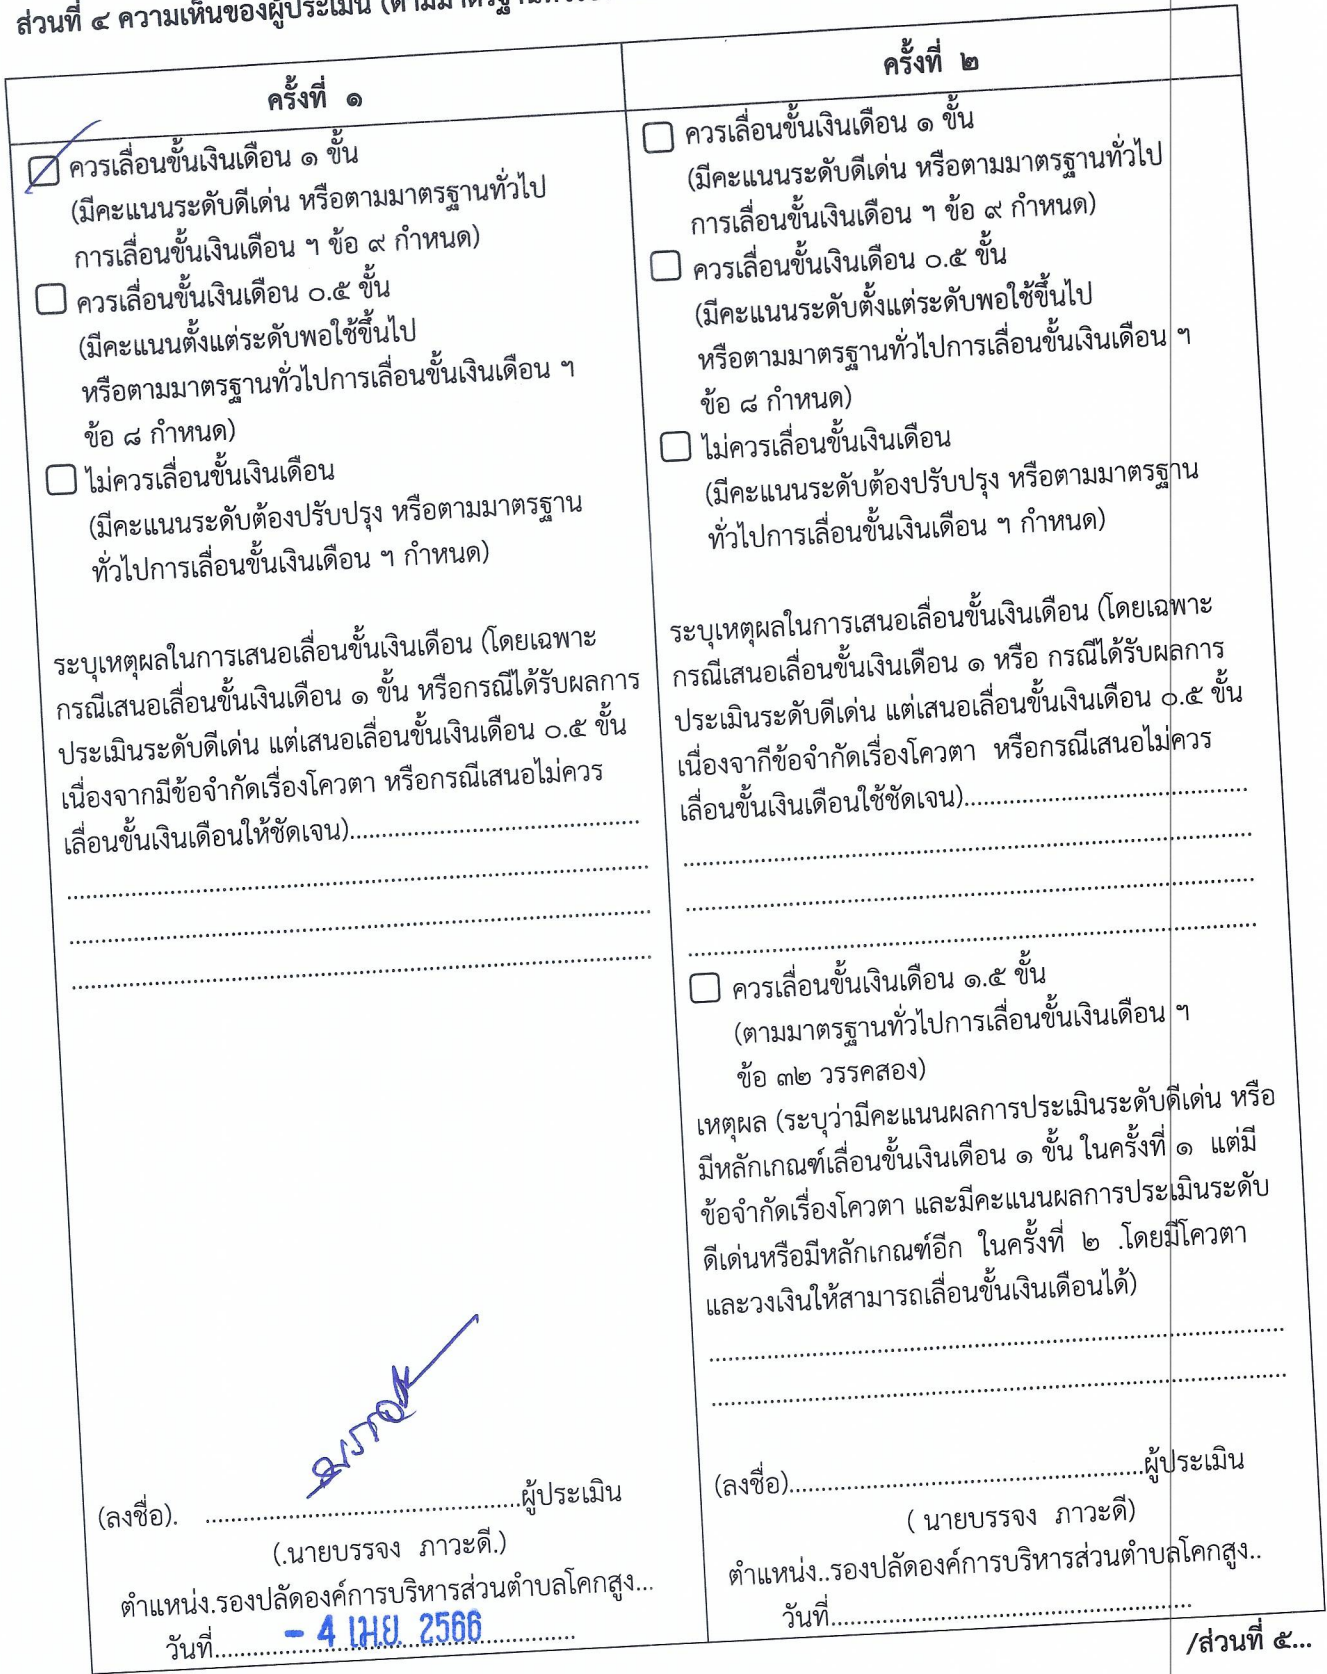 ส่วนที่ ๔ ความเห็นของผู้ประเมิน (ตามมาตรฐาน
ครั้งที่ ๑
ควรเลื่อนขั้นเงินเดือน ๑ ขั้น
(มีคะแนนระดับดีเด่น หรือตามมาตรฐานทั่วไป
การเลื่อนขั้นเงินเดือน ฯ ข้อ ๙ กำหนด)
ควรเลื่อนขั้นเงินเดือน ๐.๕ ขั้น
(มีคะแนนตั้งแต่ระดับพอใช้ขึ้นไป
หรือตามมาตรฐานทั่วไปการเลื่อนขั้นเงินเดือน ฯ
ข้อ ๘ กำหนด)
ไม่ควรเลื่อนขั้นเงินเดือน
(มีคะแนนระดับต้องปรับปรุง หรือตามมาตรฐาน
ทั่วไปการเลื่อนขั้นเงินเดือน ฯ กำหนด)
ระบุเหตุผลในการเสนอเลื่อนขั้นเงินเดือน (โดยเฉพาะ
กรณีเสนอเลื่อนขั้นเงินเดือน ๑ ขั้น หรือกรณีได้รับผลการ
ประเมินระดับดีเด่น แต่เสนอเลื่อนขั้นเงินเดือน ๐.๕ ขั้น
เนื่องจากมีข้อจำกัดเรื่องโควตา หรือกรณีเสนอไม่ควร
เลื่อนขั้นเงินเดือนให้ชัดเจน)......................................
(ลงชื่อ). ..........................................ผู้ประเมิน
(.นายบรรจง ภาวะดี.)
ตำแหน่ง.รองปลัดองค์การบริหารส่วนตำบลโคกสูง...
วันที่......................................................
- 4 เม.ย. 2566
ครั้งที่ ๒
ควรเลื่อนขั้นเงินเดือน ๑ ขั้น
(มีคะแนนระดับดีเด่น หรือตามมาตรฐานทั่วไป
การเลื่อนขั้นเงินเดือน ฯ ข้อ ๙ กำหนด)
ควรเลื่อนขั้นเงินเดือน ๐.๕ ขั้น
(มีคะแนนระดับตั้งแต่ระดับพอใช้ขึ้นไป
หรือตามมาตรฐานทั่วไปการเลื่อนขั้นเงินเดือน ฯ
ข้อ ๘ กำหนด)
ไม่ควรเลื่อนขั้นเงินเดือน
(มีคะแนนระดับต้องปรับปรุง หรือตามมาตรฐาน
ทั่วไปการเลื่อนขั้นเงินเดือน ฯ กำหนด)
ระบุเหตุผลในการเสนอเลื่อนขั้นเงินเดือน (โดยเฉพาะ
กรณีเสนอเลื่อนขั้นเงินเดือน ๑ หรือ กรณีได้รับผลการ
ประเมินระดับดีเด่น แต่เสนอเลื่อนขั้นเงินเดือน ๐.๕ ขั้น
เนื่องจากีข้อจำกัดเรื่องโควตา หรือกรณีเสนอไม่ควร
เลื่อนขั้นเงินเดือนใช้ชัดเจน)......................................
ควรเลื่อนขั้นเงินเดือน ๑.๕ ขั้น
(ตามมาตรฐานทั่วไปการเลื่อนขั้นเงินเดือน ฯ
ข้อ ๓๒ วรรคสอง)
เหตุผล (ระบุว่ามีคะแนนผลการประเมินระดับดีเด่น หรือ
มีหลักเกณฑ์เลื่อนขั้นเงินเดือน ๑ ขั้น ในครั้งที่ ๑ แต่มี
ข้อจำกัดเรื่องโควตา และมีคะแนนผลการประเมินระดับ
ดีเด่นหรือมีหลักเกณฑ์อีก ในครั้งที่ ๒ .โดยมีโควตา
และวงเงินให้สามารถเลื่อนขั้นเงินเดือนได้)
(ลงชื่อ)................................................ผู้ประเมิน
( นายบรรจง ภาวะดี)
ตำแหน่ง..รองปลัดองค์การบริหารส่วนตำบลโคกสูง..
วันที่......................................................
/ส่วนที่ ๕...